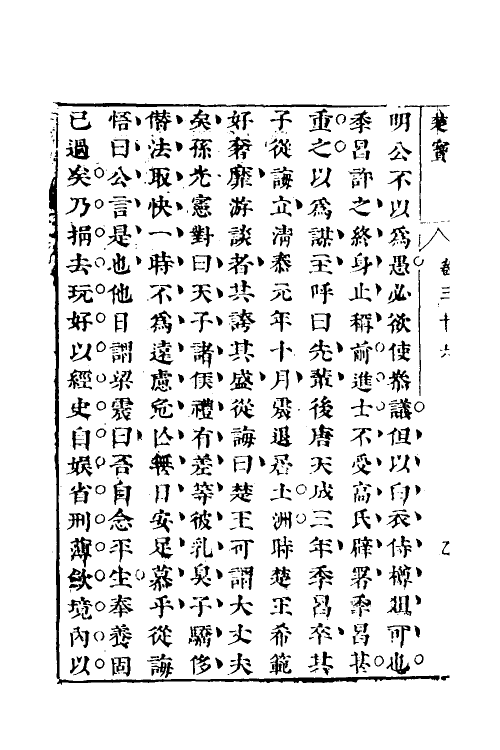 楚寶
卷三十六
明公不以為愚必欲使叅議但以白衣侍樽俎可也
季昌許之終身止稱前進士不受高氏辟署季昌甚
重之以為謀主呼曰先輩後唐天成三年季昌卒其
子從誨立清泰元年十月震退居土洲時楚王希範
好奢靡游談者共誇其盛從誨曰楚王可謂大丈夫
矣孫光憲對曰天子諸侯禮有差等彼乳臭子驕侈
僭法取快一時不為遠慮危亾無日安足慕乎從誨
悟曰公言是也他日謂梁震曰吾自念平生奉養固
已過矣乃捐去玩好以經史自娛省刑薄斂境內以